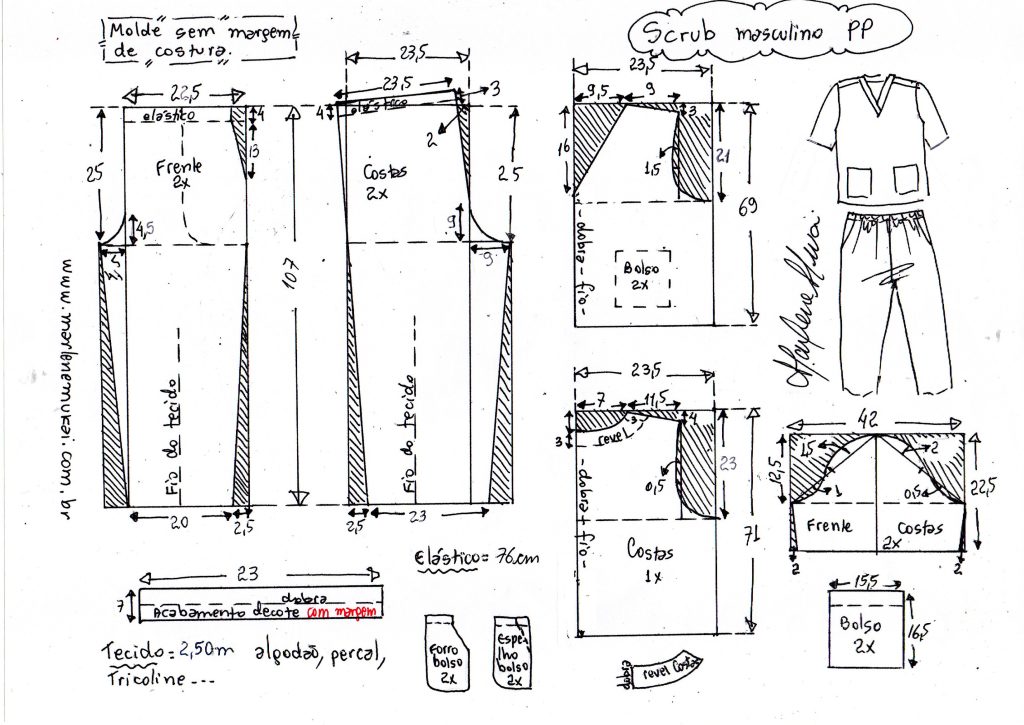 Molde sem margem
de costura.
Scrub masculino PP
22,5
elástico
4
13
25
Frente
2x
4,5
3,5
20
2,5
Fio do tecido
107
23,5
23,5
3
elástico
4
2
Costas
2x
25
9
9
Fio do tecido
25
23
23,5
9,5
9
3
16
1,5
21
69
dobra-fio-
Bolso
2x
23,5
7
11,5
3
4
3
revel
0,5
23
71
dobra-fio-
Costas
1x
42
12,5
1,5
2
1
0,5
22,5
Frente
Costas
2x
2
2
Marlene Mukai
www.marlenemukai.com.br
Elástico = 76.cm
23
7
dobra
Acabamento decote com margem
Tecido = 2,50m algodão, percal,
Tricoline ---
Forro
bolso
2x
Espe-
lho
bolso
2x
dobra
revel Costas
15,5
Bolso
2x
16,5